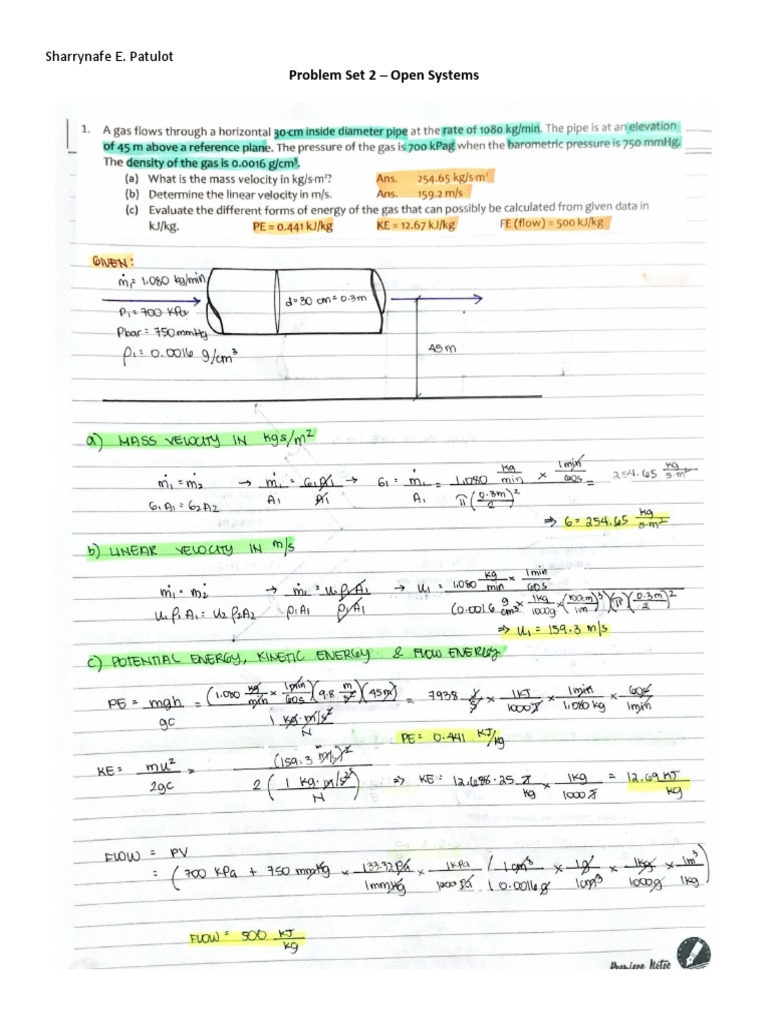 Sharrynafe E. Patulot
Problem Set 2 – Open Systems
1. A gas flows through a horizontal 30-cm inside diameter pipe at the rate of 1080 kg/min. The pipe is at an elevation
of 45 m above a reference plane. The pressure of the gas is 700 kPag when the barometric pressure is 750 mmHg.
The density of the gas is 0.0016 g/cm³.
(a) What is the mass velocity in kg/s·m²? Ans. 254.65 kg/s·m²
(b) Determine the linear velocity in m/s. Ans. 159.2 m/s
(c) Evaluate the different forms of energy of the gas that can possibly be calculated from given data in
kJ/kg. PE = 0.441 kJ/kg KE = 12.67 kJ/kg FE (flow) = 500 kJ/kg
GIVEN:
ṁ₁= 1.080 kg/min
d= 30 cm = 0.3m
P₁= 700 kPa
Pbar = 750mmHg
45 m
ρ₁= 0.0016 g/cm³
a) MASS VELOCITY IN kgs/m²
ṁ₁ = ṁ₂ → ṁ₁/A₁ = G₁A₁/A₁ → G₁ = ṁ₁/A₁ = 1,080 kg/min × 1min/60s / π(0.3m/2)² = 254.65 kg/s·m²
G₁A₁ = G₂A₂
⇒ G = 254.65 kg/s·m²
b) LINEAR VELOCITY IN m/s
ṁ₁ = ṁ₂ → ṁ₁/ρ₁A₁ = u₁ρ₁A₁/ρ₁A₁ → u₁ = 1,080 kg/min × 1min/60s / (0.0016 g/cm³ × 1kg/1000g × (100cm/1m)³)(π)(0.3m/2)²
u₁ρ₁A₁ = u₂ρ₂A₂
⇒ u₁ = 159.3 m/s
c) POTENTIAL ENERGY, KINETIC ENERGY & FLOW ENERGY
PE = mgh/gc = (1,080 kg/min × 1min/60s)(9.8 m/s²)(45m) / 1 kg·m/s²/N = 7938 J/s × 1KJ/1000J × 1min/1,080 kg × 60s/1min
PE = 0.441 KJ/kg
KE = mu²/2gc = (159.3 m/s)² / 2(1 kg·m/s²/N) ⇒ KE = 12,686.25 J/kg × 1kg/1000J = 12.69 KJ/kg
FLOW = PV
= (700 kPa + 750 mmHg × 133.32 Pa/1mmHg × 1kPa/1000 Pa (1 cm³/0.0016g × 1g/1cm³ × 1kg/1000g × 1m³/1kg)
FLOW = 500 KJ/kg